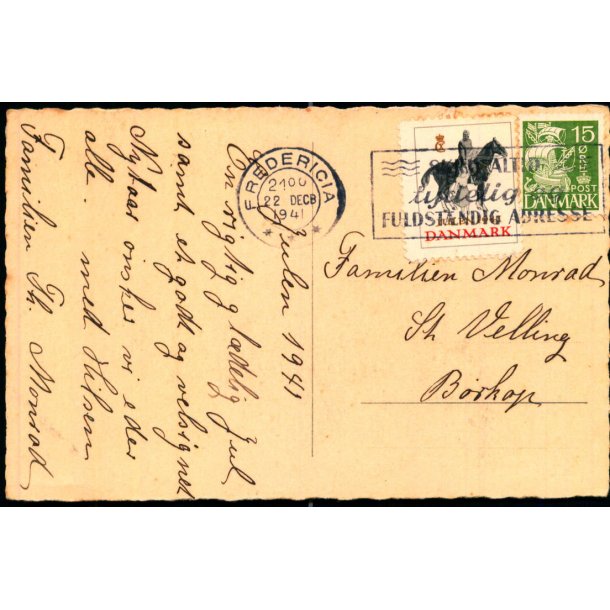 Julen 1941
En rigtig glædelig Jul
samt et godt og velsignet
Nytaar ønsker vi eder
alle. med Hilsen
Familien Th. Monrad
FREDERICIA
2100
22 DECB
1941
SKRIV ALTID
tydelig og
FULDSTÆNDIG ADRESSE
DANMARK
15
ØRE
POST
DANMARK
Familien Monrad
St. Velling
Børkop